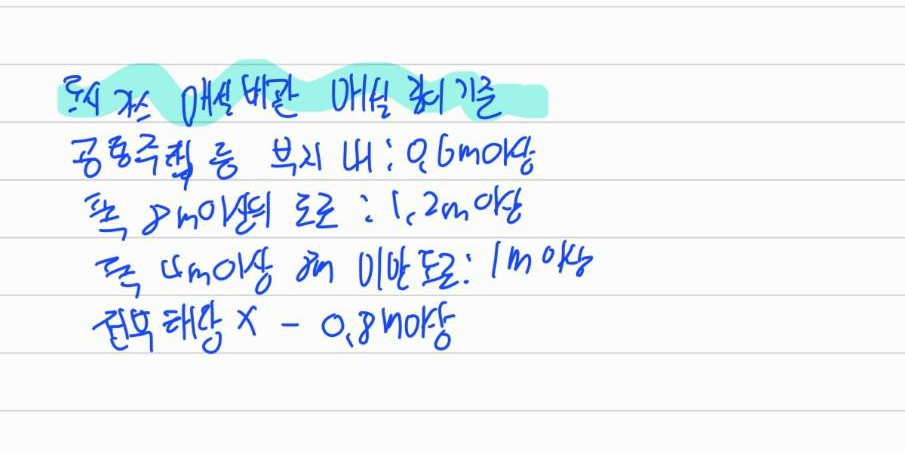 도시가스 매설배관 매설 깊이 기준
공동주택 등 부지 내 : 0.6m이상
폭 8m이상의 도로 : 1.2m이상
폭 4m이상 8m 미만 도로 : 1m이상
전부 해당 X - 0.8m이상